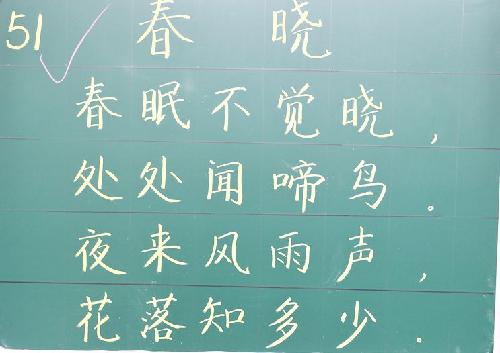 51 春 晓
春眠不觉晓,
处处闻啼鸟。
夜来风雨声,
花落知多少.